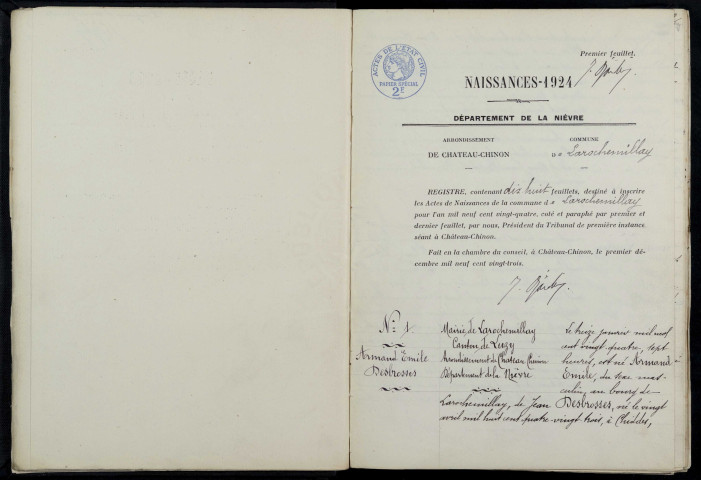 Premier feuillet.
ACTES DE L'ÉTAT CIVIL
PAPIER SPÉCIAL
2F
NAISSANCES-1924
DÉPARTEMENT DE LA NIÈVRE
ARRONDISSEMENT
DE CHATEAU-CHINON
COMMUNE
De Larochemillay
REGISTRE, contenant dix huit feuillets, destiné à inscrire
les Actes de Naissances de la commune de Larochemillay
pour l'an mil neuf cent vingt-quatre, coté et paraphé par premier et
dernier feuillet, par nous, Président du Tribunal de première instance
séant à Château-Chinon.
Fait en la chambre du conseil, à Château-Chinon, le premier dé-
cembre mil neuf cent vingt-trois.
No 1
Armand Emile
Desbrosses
Mairie de Larochemillay
Canton de Luzy
Arrondissement de Château Chinon
Département de la Nièvre
Le treize janvier mil neuf
cent vingt quatre, sept
heures, est né Armand
Emile, du sexe mas-
culin, au bourg de
Larochemillay, de Jean Desbrosses, né le vingt
avril mil huit cent quatre-vingt trois, à Chiddes,